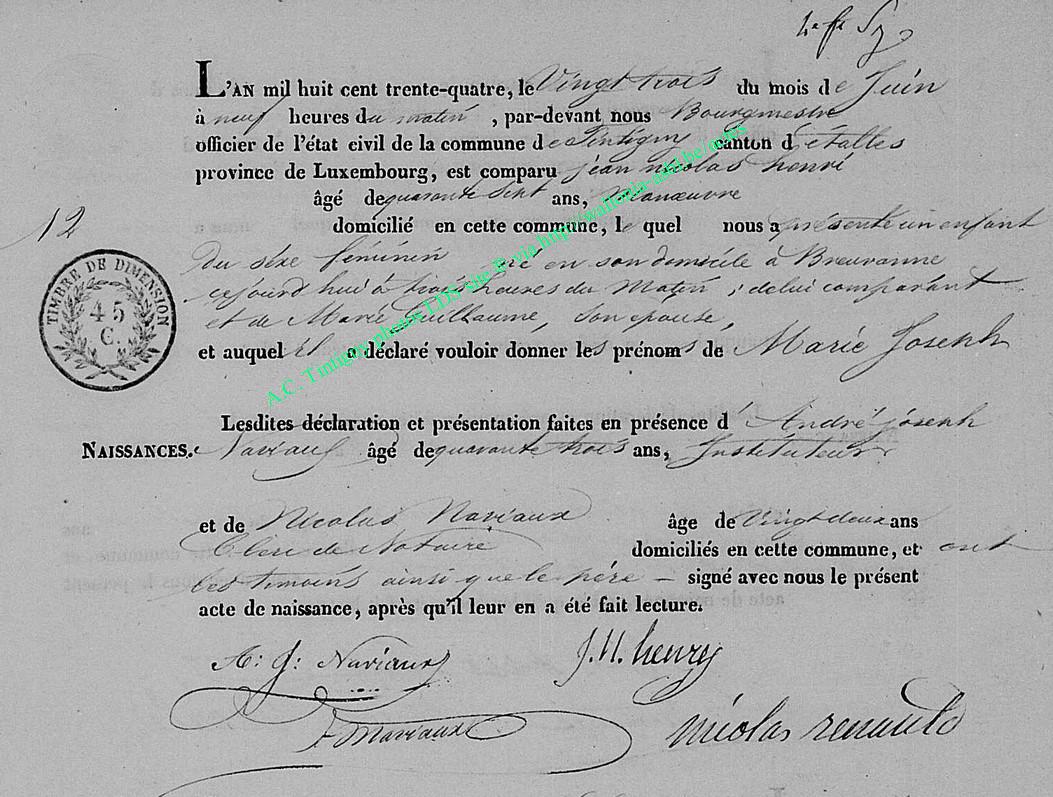 L'AN mil huit cent trente-quatre, le Vingt trois du mois de Juin
à neuf heures du matin, par-devant nous Bourgmestre
officier de l'état civil de la commune de Tintigny canton d'étalles
province de Luxembourg, est comparu jean nicolas henri
âgé de quarante sept ans, Manœuvre
12
domicilié en cette commune, le quel nous a présenté un enfant
du sexe féminin né en son domicile à Breuvanne
cejourd'hui à trois heures du Matin, de lui comparant
et de Marie Guillaume, son épouse,
TIMBRE DE DIMENSION
45
C.
et auquel il a déclaré vouloir donner les prénoms de Marie Joseph
A.C. Tintigny photos LDS site © via http://wallonia-asbl.be/actes
Lesdites déclaration et présentation faites en présence d'André joseph
NAISSANCES. Naviaux âgé de quarante trois ans, Instituteur
et de Nicolas Naviaux âge de Vingt deux ans
Clerc de Notaire domiciliés en cette commune, et ont
les témoins ainsi que le père — signé avec nous le présent
acte de naissance, après qu'il leur en a été fait lecture.
A: J: Naviaux J. N. henry
Naviaux nicolas renauld